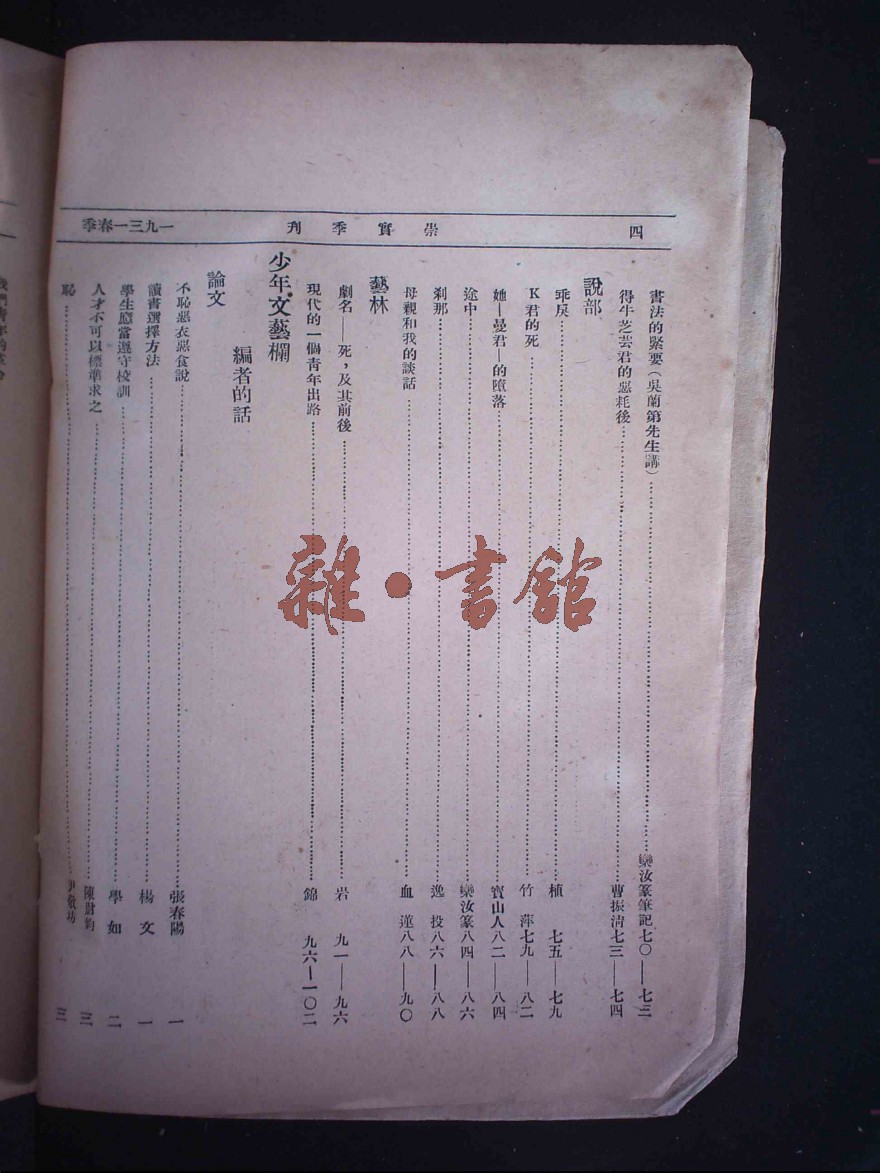 四
崇實季刊
一九三一春季
書法的緊要(吳蘭第先生講)……欒汝篆筆記七〇——七三
得牛芝芸君的惡耗後……曹振清七三——七四
說部
乖戾……植 七五——七九
K君的死……竹 萍七九——八二
她—曼君—的墮落……寶山人八二——八四
途中……欒汝篆八四——八六
剎那……逸 投八六——八八
母親和我的談話……血 蓮八八——九〇
藝林
劇名——死，及其前後……岩 九一——九六
現代的一個青年出路……錦 九六—一〇二
少年文藝欄
編者的話
論文
不恥惡衣惡食說……張春陽 一
讀書選擇方法……楊文 一
學生應當遵守校訓……學如 二
人才不可以標準求之……陳尉鈞 三
恥……尹敬坊 三
雜·書館